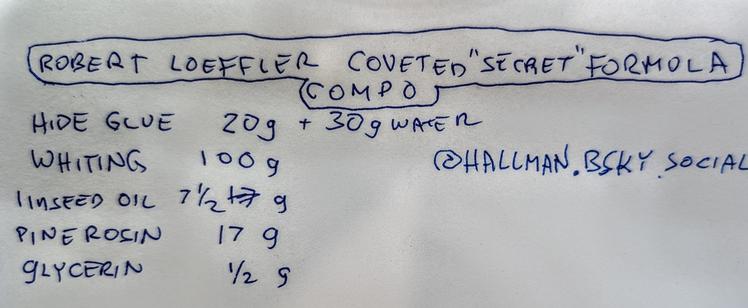 ROBERT LOEFFLER COVETED "SECRET" FORMULA
COMPO
HIDE GLUE 20g + 30g WATER
WHITING 100 g
@HALLMAN.BSKY.SOCIAL
LINSEED OIL 7 1/2 g
PINE ROSIN 17 g
GLYCERIN 1/2 g